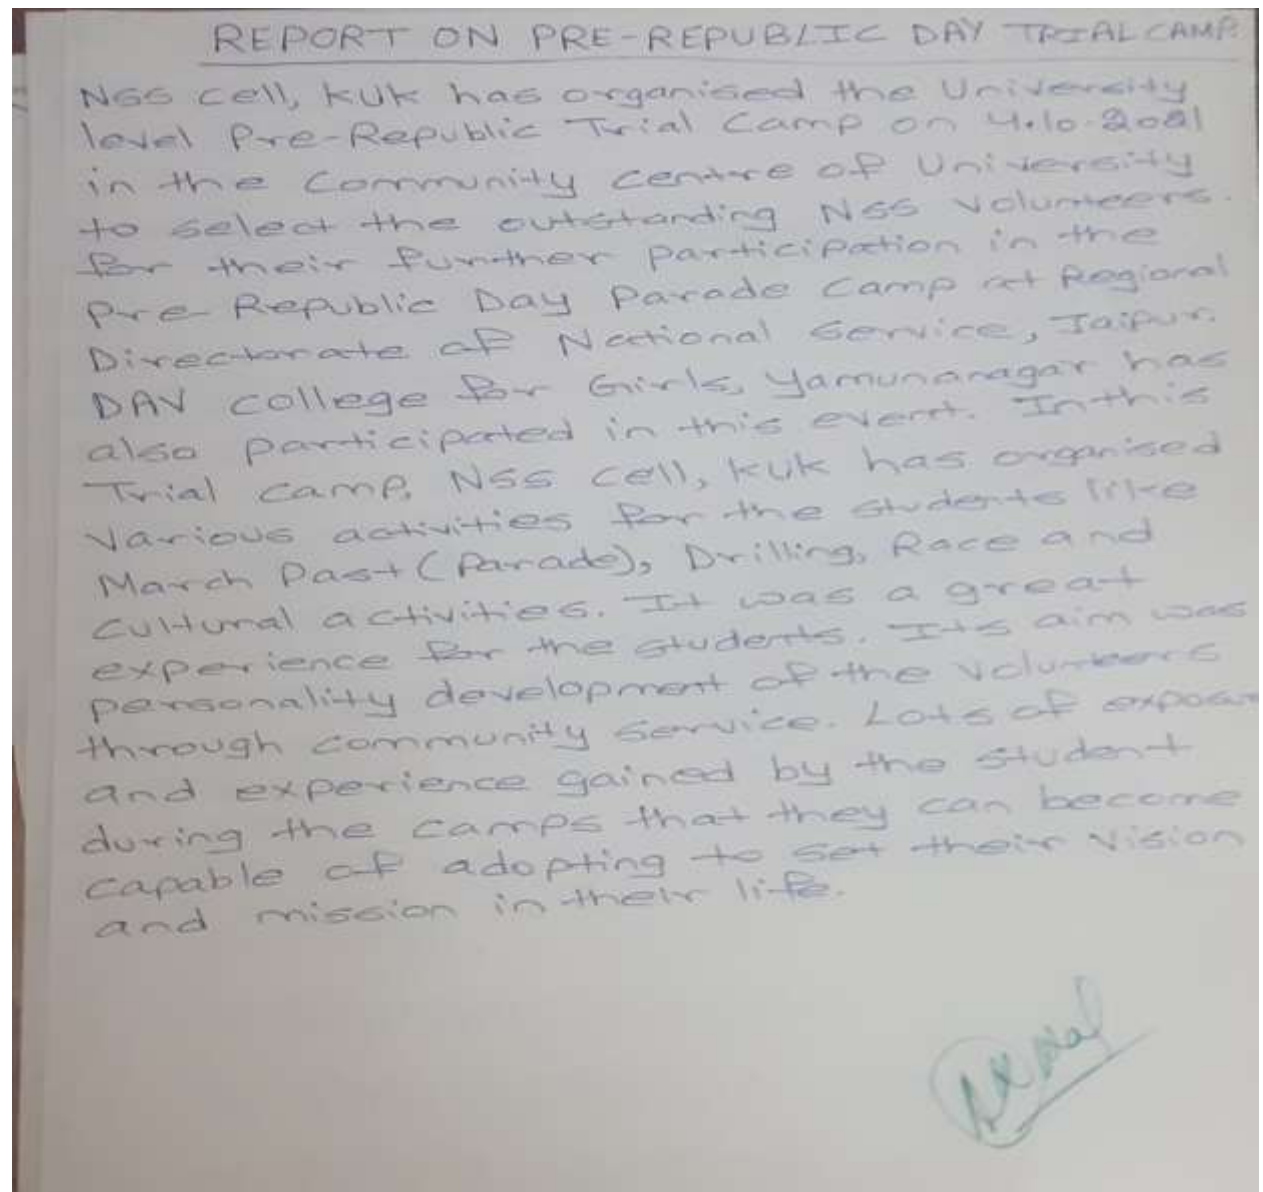 REPORT ON PRE-REPUBLIC DAY TRIAL CAMP
NSS cell, KUK has organised the University
level Pre-Republic Trial Camp on 4.10.2021
in the Community centre of University
to select the outstanding NSS Volunteers.
for their further participation in the
Pre-Republic Day Parade Camp at Regional
Directorate of National Service, Jaipur.
DAV college for Girls, Yamunanagar has
also participated in this event. In this
Trial camp, NSS cell, KUK has organised
various activities for the students like
March Past (Parade), Drilling, Race and
cultural activities. It was a great
experience for the students. Its aim was
personality development of the volunteers
through community service. Lots of
and experience gained by the student
during the camps that they can become
capable of adopting to set their vision
and mission in their life.